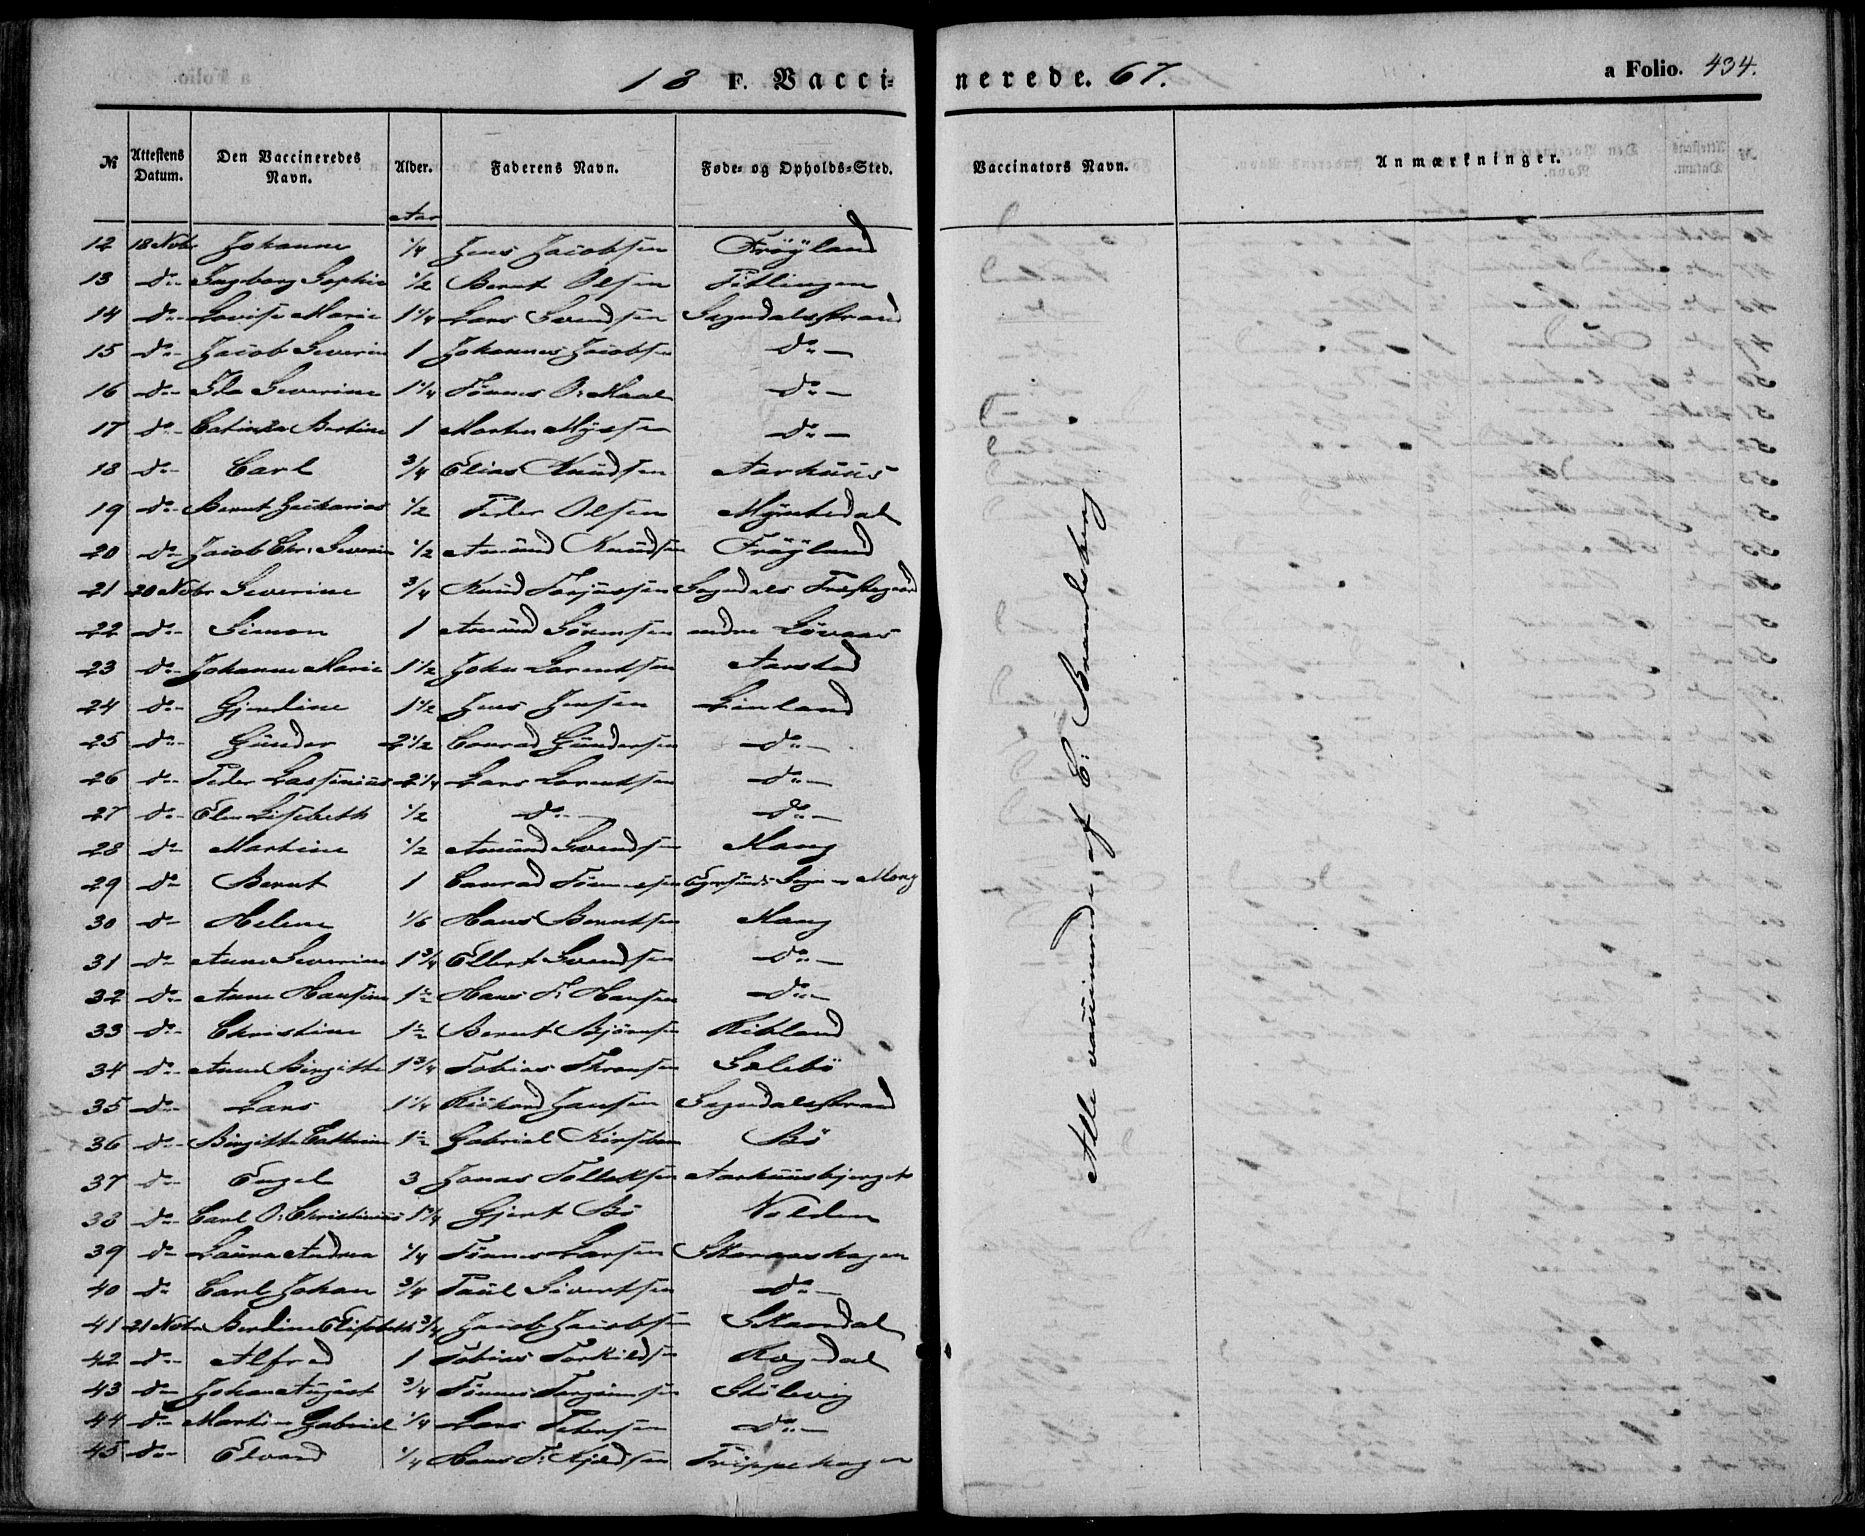 18 F. Vacci- nerede. 67. a Folio. 434.
№ Attestens Datum. Den Vaccineredes Navn. Alder. Faderens Navn. Føde- og Opholds-Sted. Vaccinators Navn. Anmærkninger.
Aar
12 18 Nobr Johanne 1/4 Jens Jacobsen Frøyland
13 do Ingborg Sophie 1/2 Bernt Olsen Titlingen
14 do Lovise Marie 1 1/4 Lars Svendsen Sogndalsstrand
15 do Jacob Severin 1 Johannes Jacobsen do
16 do Ila Severine 1 1/4 Tønnes O: Maal do
17 do Cathinka Bertine 1 Morten Nyssen do
18 do Carl 3/4 Elias Knudsen Aarhuus
19 do Bernt Zacharias 1/2 Peder Olsen Myntedal
20 do Jacob Chr: Severin 1/2 Amund Knudsen Frøyland
21 20 Nobr Severine 3/4 Knud Torjussen Sogndals Præstegaard
22 do Simon 1 Amund Sørensen nedre Løvaas
23 do Johanne Marie 1 1/2 John Larentsen Aarstad
24 do Gjerdine 1 1/2 Jens Jensen Linland
25 do Gunder 2 1/2 Conrad Gundersen do
26 do Peder Lassenius 2 1/4 Lars Larentsen do
27 do Elen Lisebeth 1/2 do do
28 do Martine 1/2 Amund Svendsen Mong
29 do Bernt 1 Conrad Tønnessen Egersunds Sogn Mong
30 do Helene 1/6 Hans Berntsen Mong
31 do Anne Severine 1 3/4 Ellert Svendsen do
32 do Anne Hansine 1 1/2 Hans F: Hansen do
33 do Christine 1 1/2 Bernt Bjørnsen Rikland
34 do Anne Birgitte 1 3/4 Tobias Thronsen Galebø
35 do Lars 1 1/4 Rickard Hansen Sogndalsstrand
36 do Birgitte Cathrine 1 1/2 Gabriel Kirsebom Bö
37 do Engel 3 Jonas Tollaksen Aarhuusbjerget
38 do Carl O: Christinius 1 1/4 Gjert Bö Nolden
39 do Laura Andrea 1/4 Tønnes Larsen Skaraashagen
40 do Carl Johan 3/4 Paul Sivertsen do
41 21 Nobr Berdine Elisebeth 3/4 Jacob Jacobsen Skarndal
42 do Alfred 1 Tobias Torkildsen Rægedal
43 do Johan August 3/4 Tønnes Torgiersen Stölevig
44 do Martin Gabriel 1/4 Lars Petersen do
45 do Edvard 1/4 Hans P: Kjeldsen Trippehagen
Alle vaccinerede af C: Bramlsberg